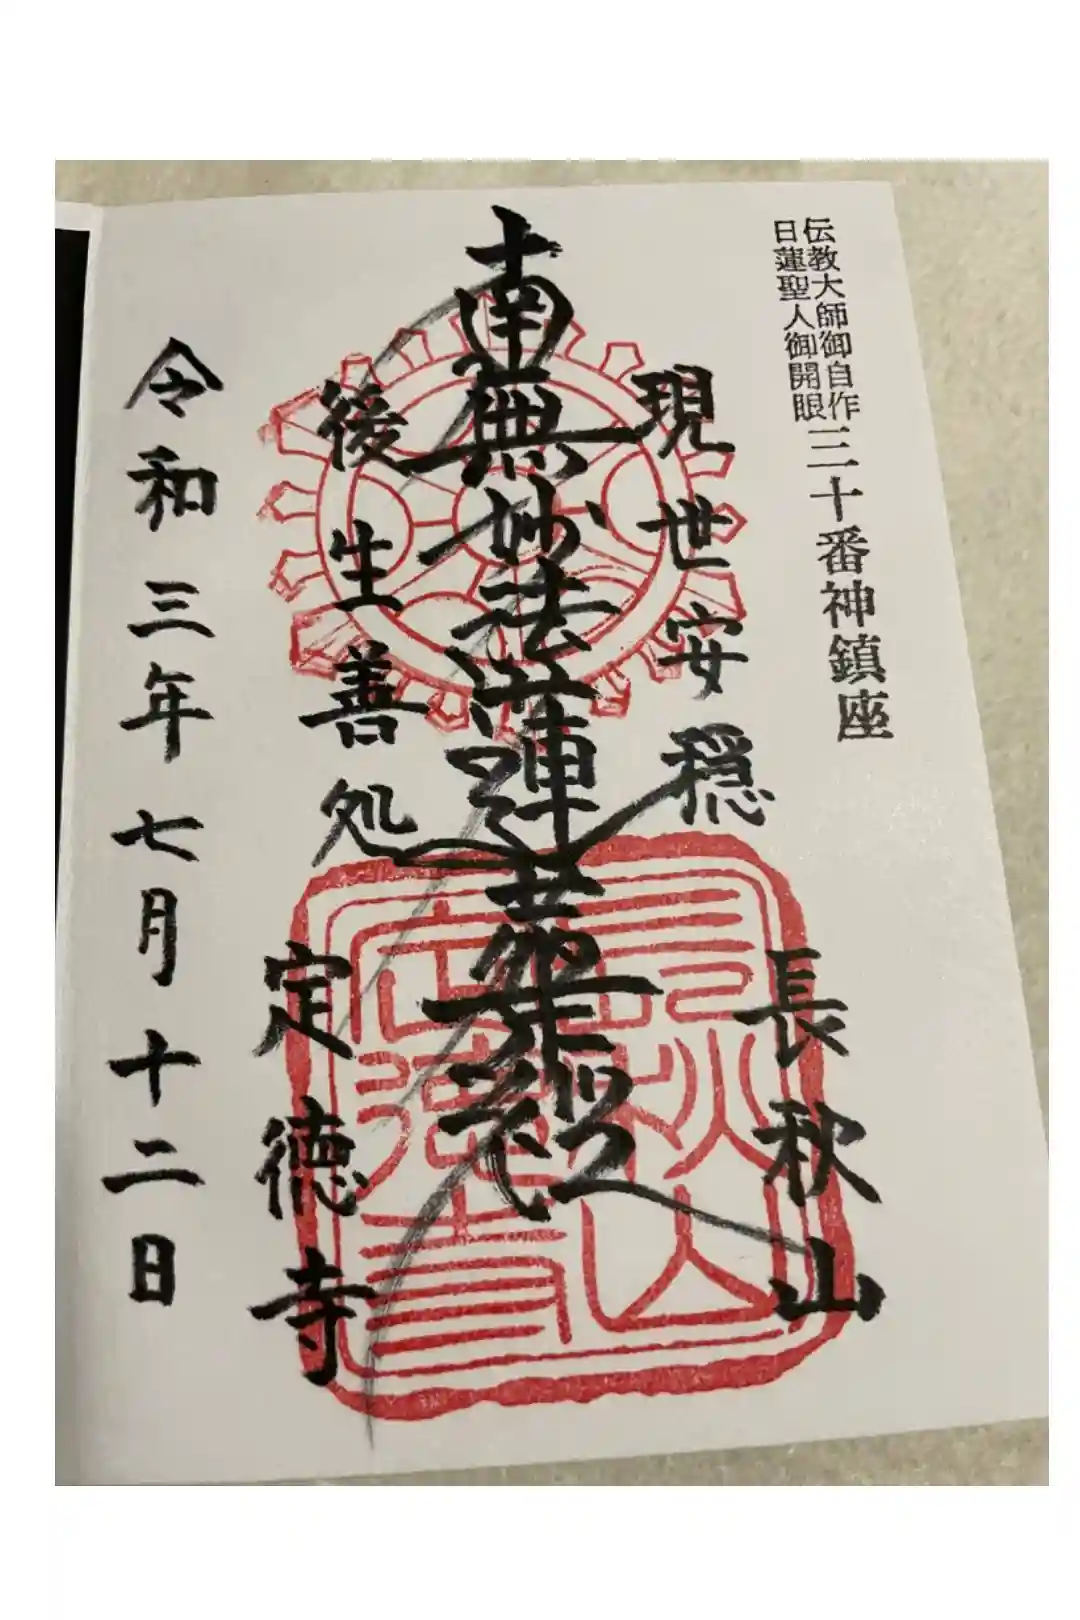 伝教大師御自作
日蓮聖人御開眼
三十番神鎮座
長秋山
現世安穏
南無妙法蓮華経
後生善処
定徳寺
令和三年七月十二日
長秋山
定徳寺